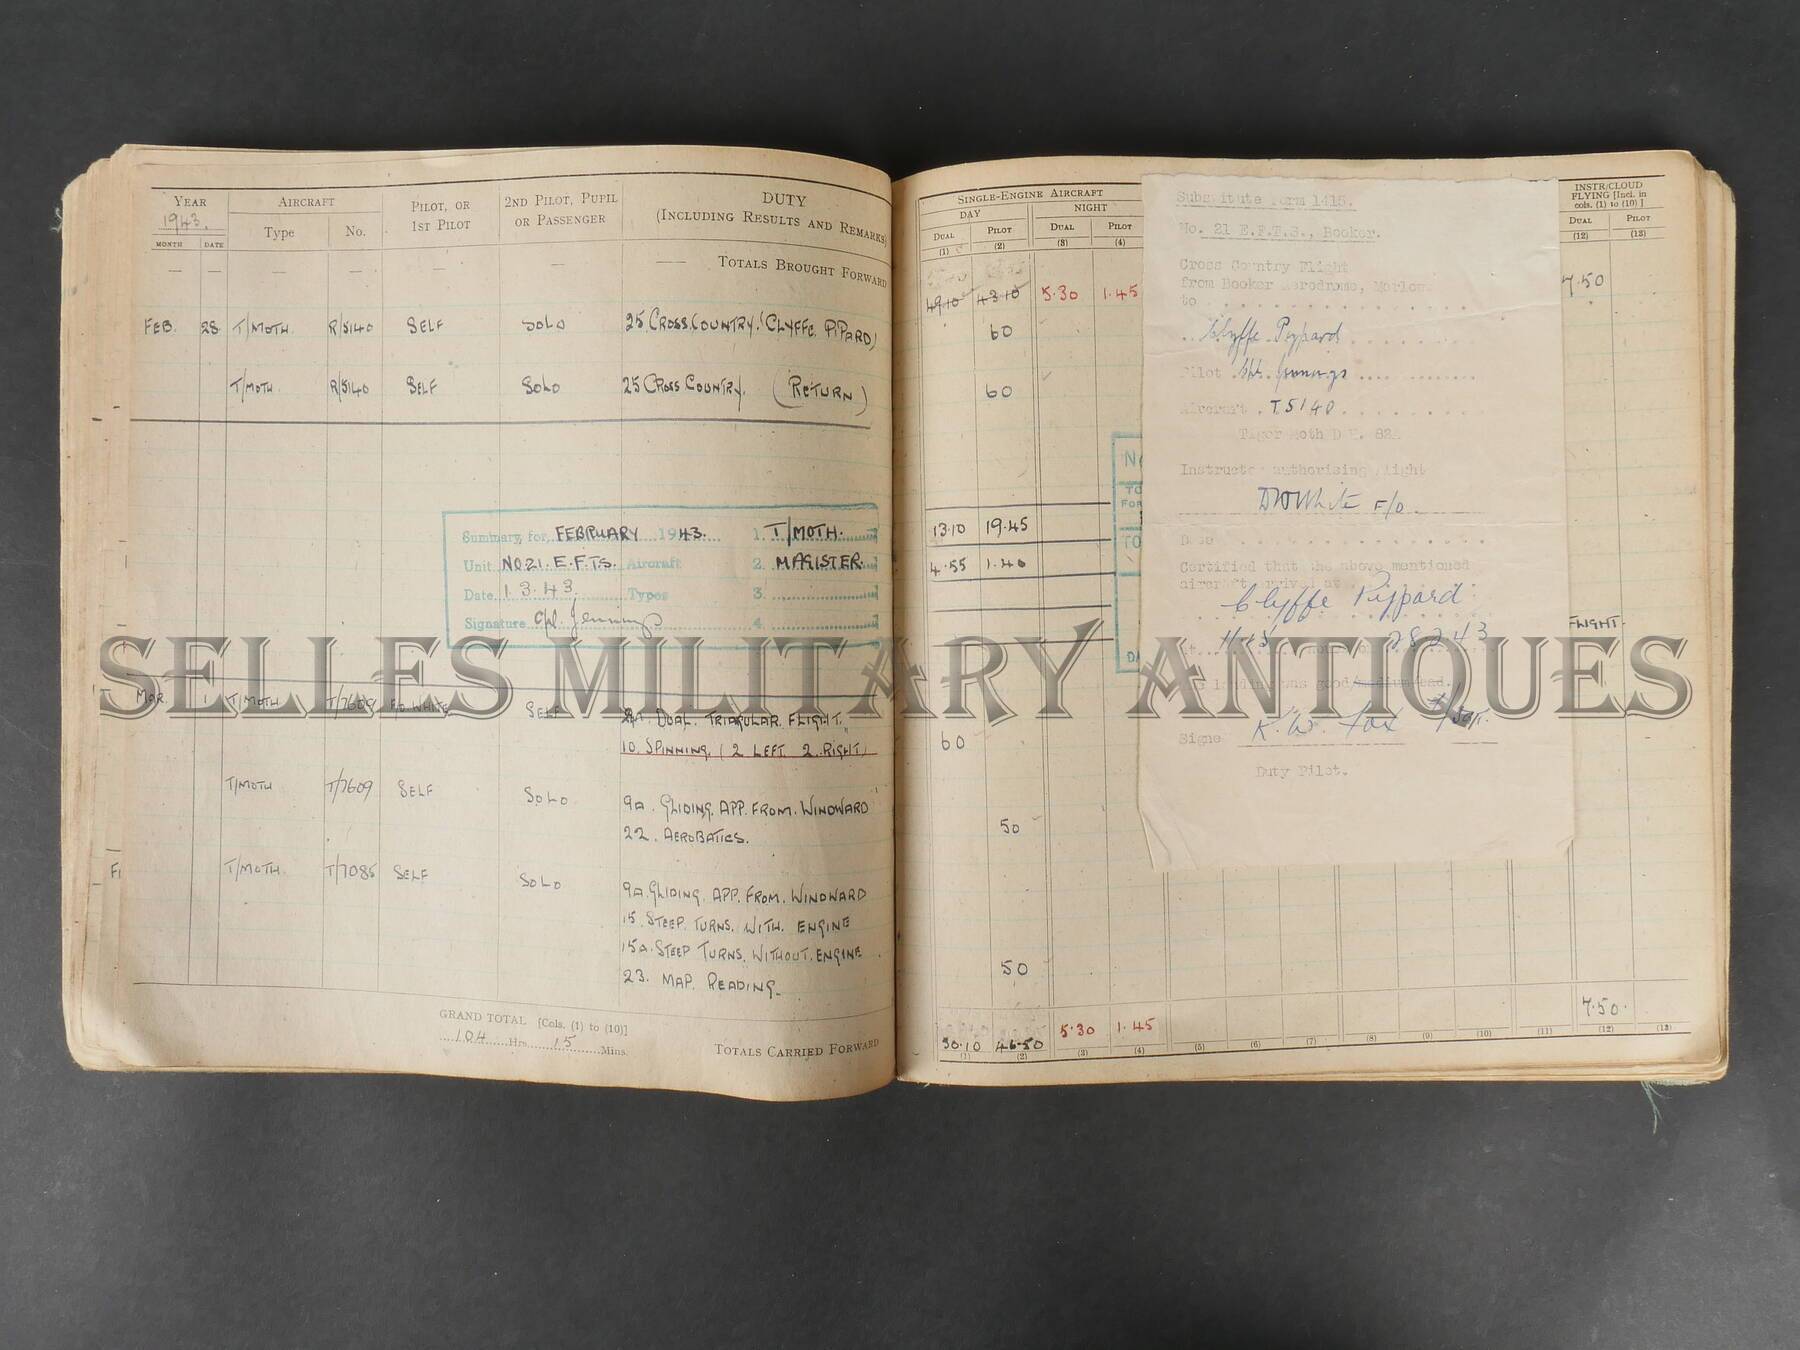 YEAR
1943.
MONTH DATE
AIRCRAFT
Type No.
PILOT, OR
1ST PILOT
2ND PILOT, PUPIL
OR PASSENGER
DUTY
(INCLUDING RESULTS AND REMARKS)
— — — — — — —— TOTALS BROUGHT FORWARD
FEB. 28 T/MOTH. R/5140 SELF SOLO 25 CROSS.COUNTRY. (CLYFFE. PIPARD)
T/MOTH R/5140 SELF SOLO 25 CROSS COUNTRY. (RETURN)
Summary for FEBRUARY 1943. 1. T/MOTH.
Unit NO.21. E.F.T.S. Aircraft 2. MAGISTER.
Date 1.3.43. Types 3.
Signature Cpl. Jennings 4.
MAR. 1 T/MOTH T/7609 F/O. WHITE SELF DUAL. TRIAGULAR. FLIGHT.
10. SPINNING. (2 LEFT. 2. RIGHT)
T/MOTH T/7609 SELF SOLO 9A. GLIDING. APP. FROM. WINDWARD
22. AEROBATICS.
T/MOTH. T/7085 SELF SOLO 9A. GLIDING. APP. FROM. WINDWARD
15. STEEP. TURNS. WITH. ENGINE
15A. STEEP TURNS. WITHOUT. ENGINE.
23. MAP. READING.
GRAND TOTAL [Cols. (1) to (10)]
104 Hrs. 15 Mins.
TOTALS CARRIED FORWARD
SINGLE-ENGINE AIRCRAFT
DAY NIGHT
DUAL PILOT DUAL PILOT
(1) (2) (3) (4)
49.10 43.10 5.30 1.45
60
60
13.10 19.45
4.55 1.40
60
50
50
50.10 46.50 5.30 1.45
(1) (2) (3) (4) (5) (6) (7) (8) (9) (10) (11) (12) (13)
Substitute Form 1415.
No. 21 E.F.T.S., Booker.
Cross Country Flight
from Booker Aerodrome, Marlow.
to
Clyffe Pyppard
Pilot Cpl. Jennings
Aircraft T5140
Tiger Moth D.H. 82A
Instructor authorising flight
D W White F/O
Date
Certified that the above mentioned
aircraft arrived at
Clyffe Pippard
at 11.15 hours on 28 2 43
landing was good/medium/bad.
Signe K. W. Fox
Duty Pilot.
INSTR/CLOUD
FLYING [Incl. in
cols. (1) to (10)]
DUAL PILOT
(12) (13)
7.50
FLIGHT.
7.50.
SELLES MILITARY ANTIQUES